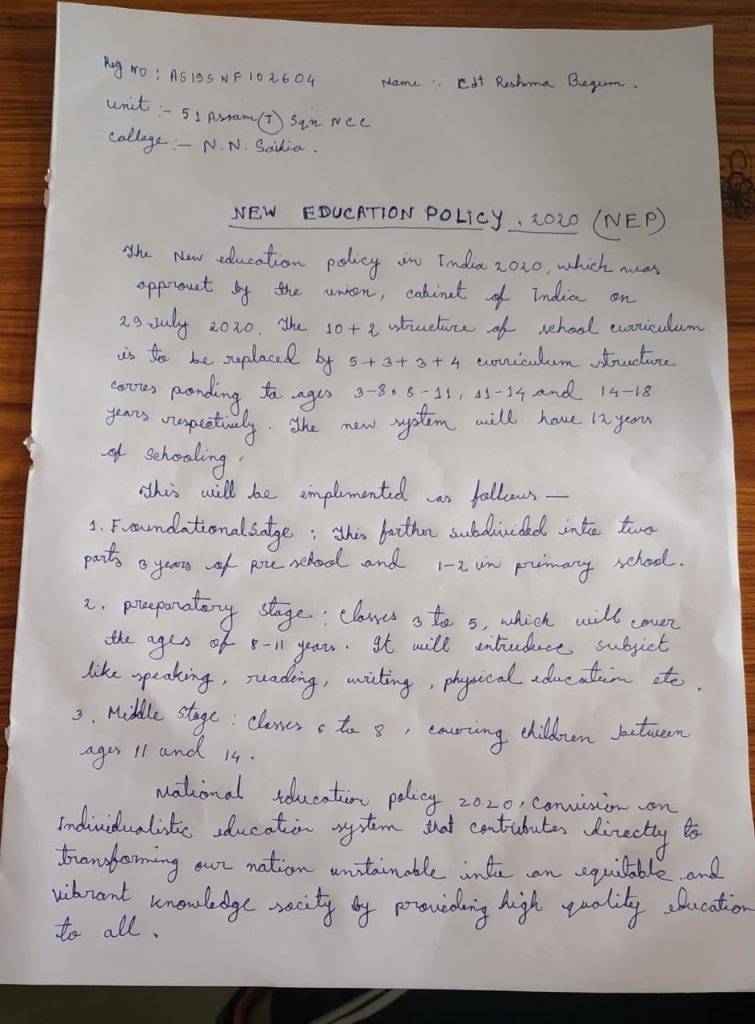 Reg No : AS19SWF102604 Name :- Cdt Reshma Begum.
unit :- 51 Assam (T) Sqn NCC
Collage :- N.N. Saikia.
NEW EDUCATION POLICY, 2020 (NEP)
The New education policy in India 2020, which was
approvet by the union, cabinet of India on
29 July 2020. The 10+2 structure of school curriculum
is to be replaced by 5+3+3+4 curriculum structure
corres ponding to ages 3-8, 8-11, 11-14 and 14-18
years respectively. The new system will have 12 years
of schooling.
This will be emplimented as follows —
1. Foundational Satge : This farther subdivided into two
parts 3 years of pre school and 1-2 in primary school.
2. preeparatory stage : Classes 3 to 5, which will cover
the ages of 8-11 years. It will entruduce subject
like speaking, reading, writing, physical education etc.
3. Middle Stage : Classes 6 to 8, covering children between
ages 11 and 14.
National education policy 2020, on
Individualistic education system that contributes directly to
transforming our nation unstainable into an equitable and
vibrant knowledge socity by provieding high quality education
to all.